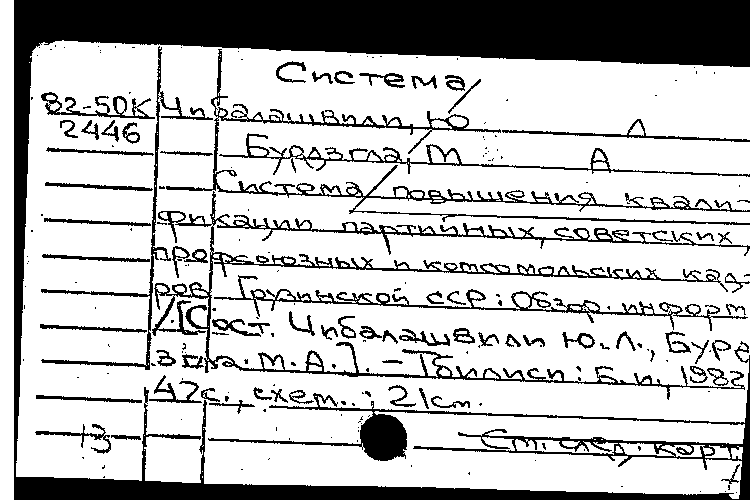 Система/
82-50К Чибалашвили, Ю Л
2446
Бурдзгла, М А
Система/повышения квали-
фикации партийных, советских,
профсоюзных и комсомольских кад-
ров Грузинской ССР: Обзор. информ
/[Сост. Чибалашвили Ю.Л., Бурд
згла М.А.]. - Тбилиси: Б.и., 1982
47с., схем.; 21см.
13 См. след. карт.